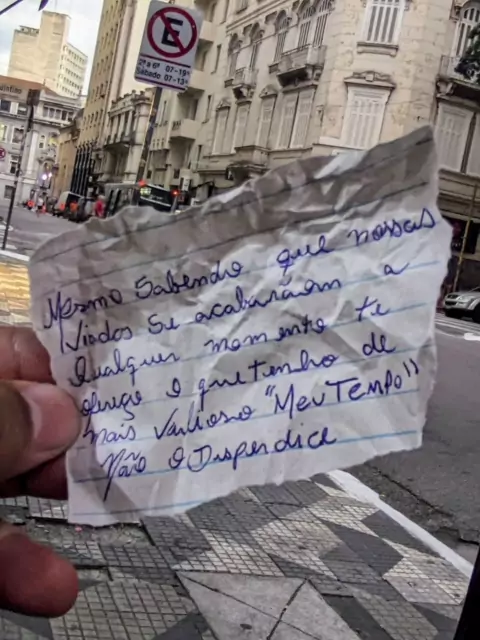 E
2ª a 6ª 07-19h
Sábado 07-13h
Mesmo Sabendo que nossas
Vidas Se acabaram a
Qualquer momento te
ofereço o que tenho de
mais Valioso "Meu Tempo"
Não o Disperdice